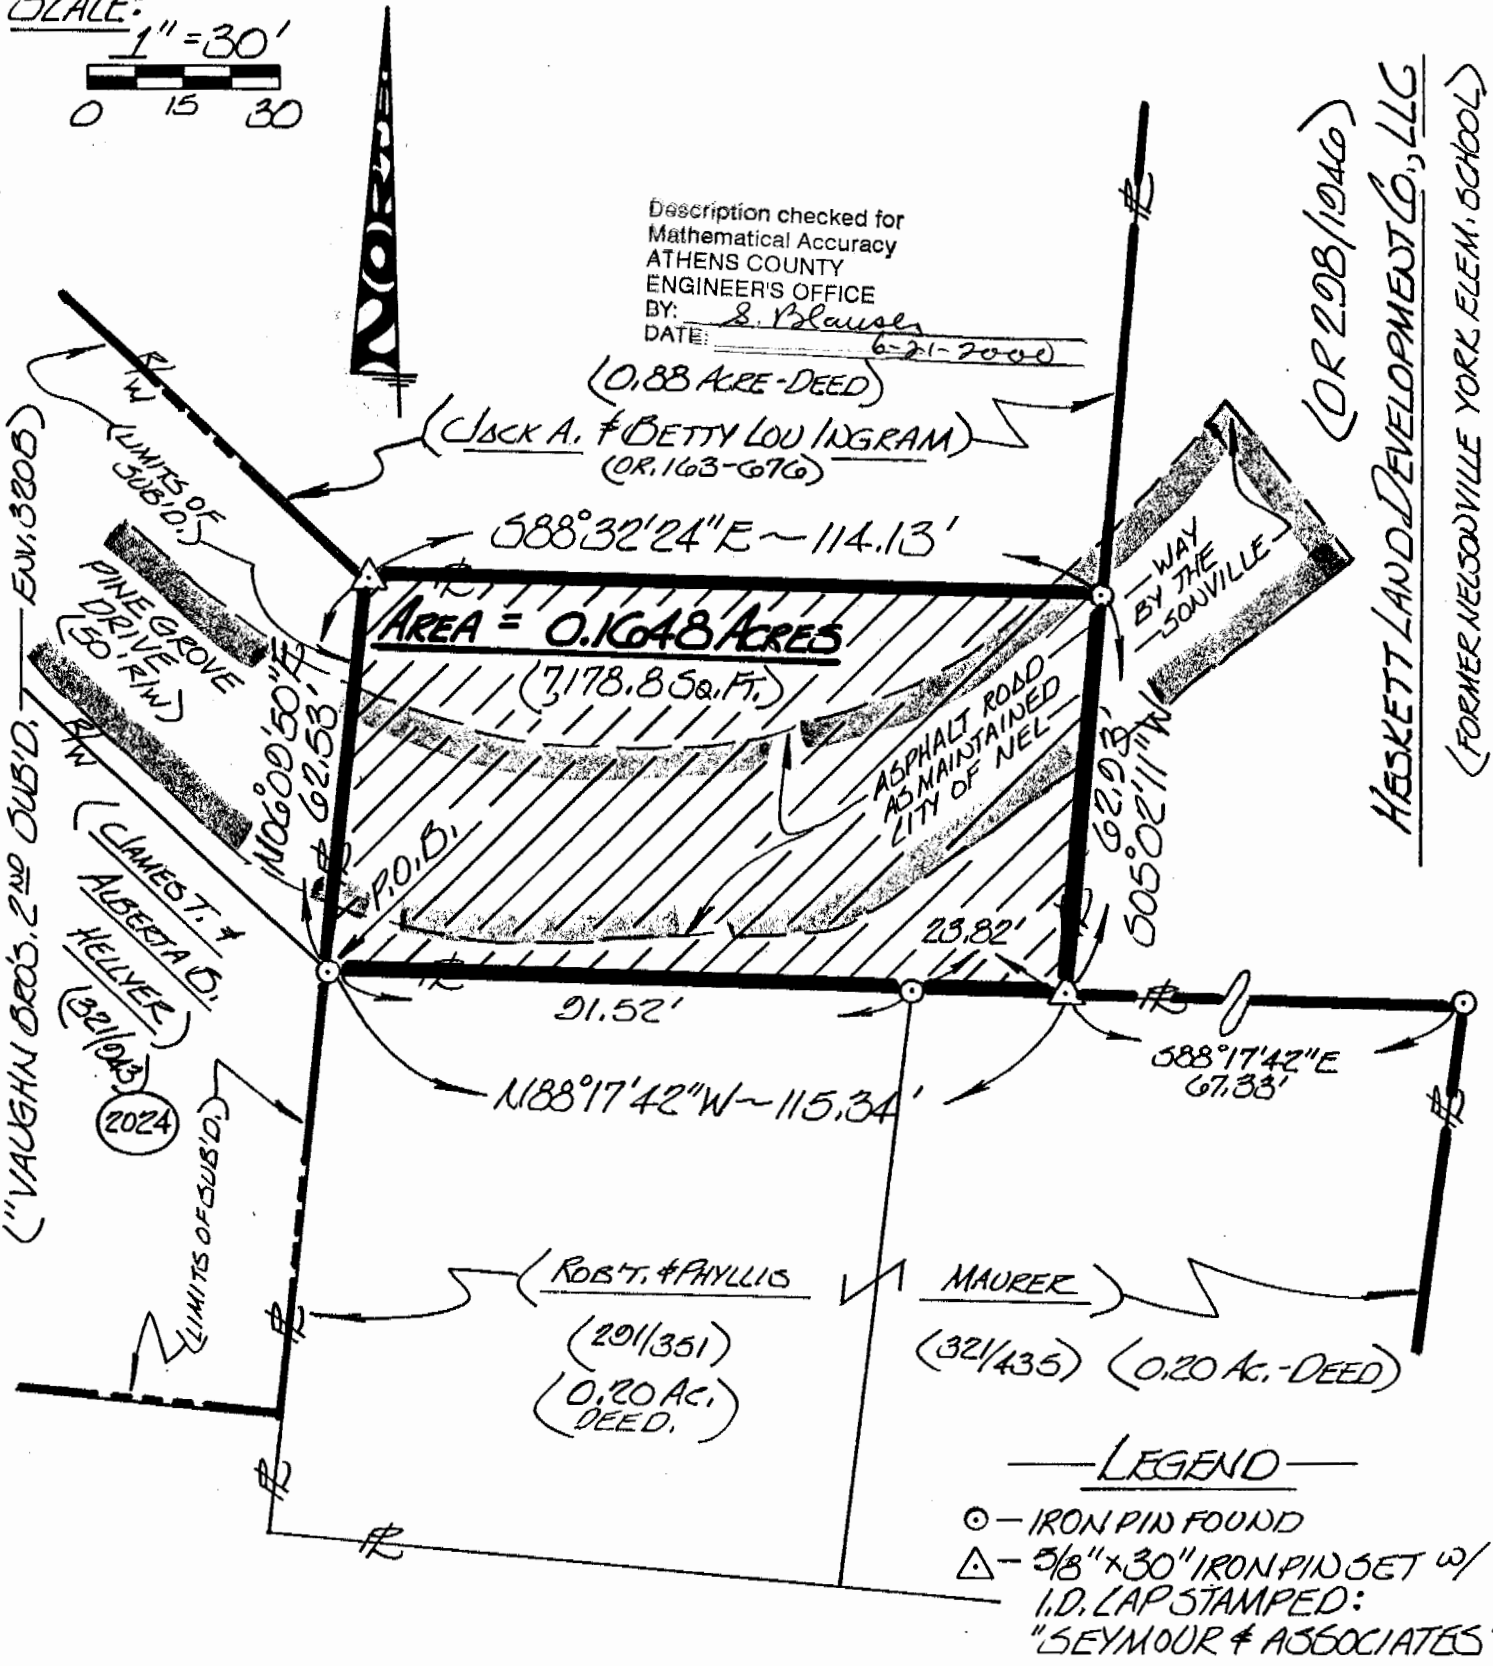 SCALE:
1" = 30'
0 15 30
NORTH
Description checked for
Mathematical Accuracy
ATHENS COUNTY
ENGINEER'S OFFICE
BY: S. Blauser
DATE: 6-21-2000
(0.88 ACRE-DEED)
(JACK A. & BETTY LOU INGRAM)
(OR. 163-676)
(OR 298/1946)
HESKETT LAND DEVELOPMENT CO., LLC
(FORMER NELSONVILLE YORK ELEM. SCHOOL)
R/W
(LIMITS OF
SUB'D.)
S88°32'24"E ~ 114.13'
PINEGROVE
DRIVE
(50' R/W)
R/W
("VAUGHN BRO'S. 2ND SUB'D. — ENV. 320B)
AREA = 0.1648 ACRES
(7,178.8 SQ. FT.)
N06°09'50"E
62.53'
P.O.B.
ASPHALT ROAD
AS MAINTAINED
CITY OF NEL
WAY
BY THE
SONVILLE
S05°02'11"W
62.93'
(JAMES T. &
ALBERTA B.
HELLYER)
(321/943)
2024
23.82'
91.52'
N88°17'42"W ~ 115.34'
S88°17'42"E
67.33'
(LIMITS OF SUB'D.)
(ROB'T. & PHYLLIS MAURER)
(291/351)
(0.20 AC.
DEED.)
(321/435) (0.20 AC.-DEED)
PL
LEGEND
— IRON PIN FOUND
— 5/8" x 30" IRON PIN SET W/
I.D. CAP STAMPED:
"SEYMOUR & ASSOCIATES"